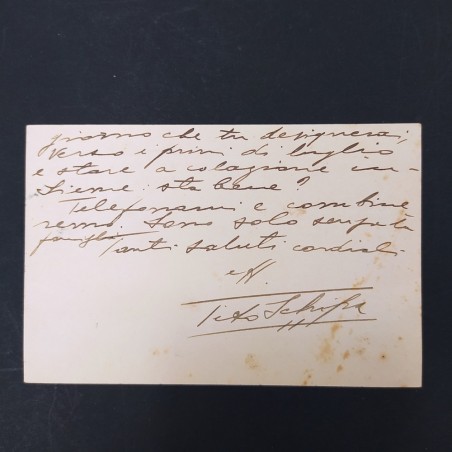 giorno che tu designerai,
verso i primi di luglio
e stare a colazione in-
sieme: sta bene?
Telefonami e combine
remo. Sono solo senza la
famiglia. Tanti saluti cordiali
aff.
Tito Schipa